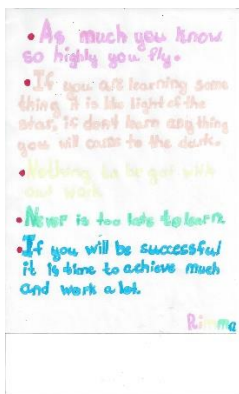 • As much you know
so highly you fly.
• If you are learning some
thing it is like light of the
star, if dont learn any thing
you will came to the dark.
• Nothing to be got with
out work
• Never is too late to learn
• If you will be successful
it is time to achieve much
and work a lot.
Rimma